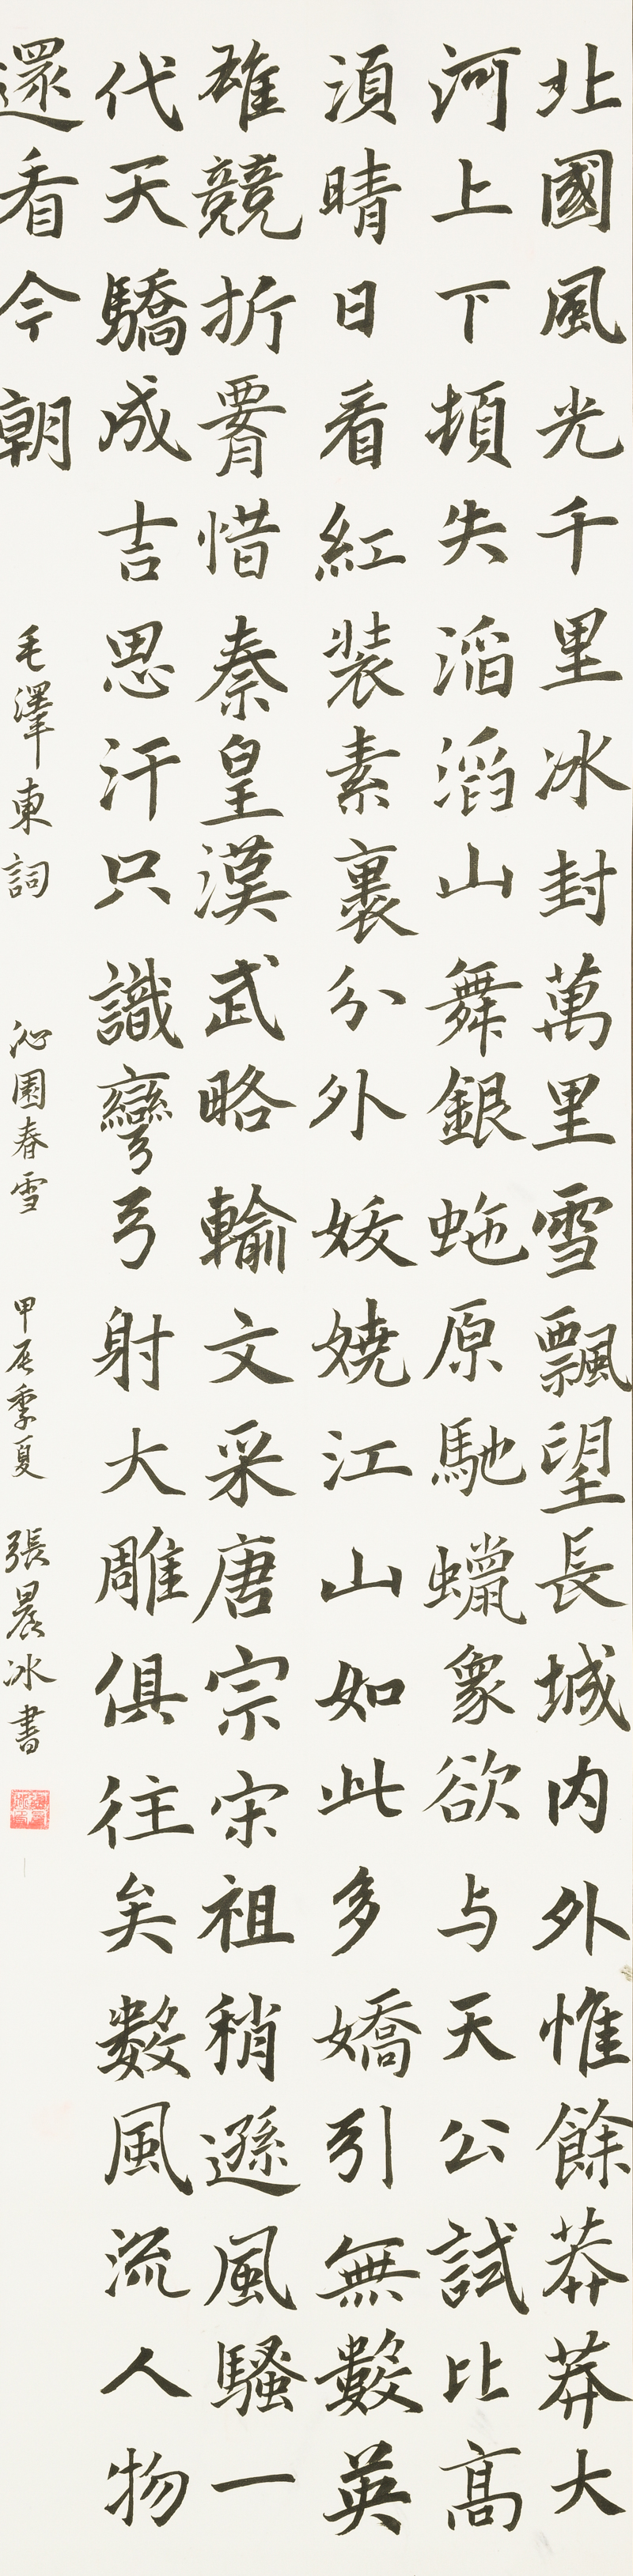 北國風光千里冰封萬里雪飄望長城内外惟餘莽莽大
河上下頓失滔滔山舞銀虵原馳蠟象欲与天公試比高
須晴日看紅装素裹分外妖嬈江山如此多嬌引無數英
雄競折腰惜秦皇漢武略輸文采唐宗宋祖稍遜風騷一
代天驕成吉思汗只識彎弓射大雕俱往矣數風流人物
還看今朝
毛澤東詞 沁園春雪 甲辰季夏 張晨冰書